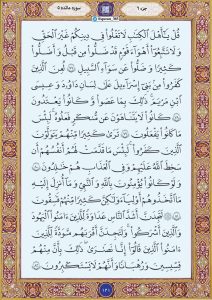 جزء ۶
سوره مائده ۵
قُلْ يَٰٓأَهْلَ ٱلْكِتَٰبِ لَا تَغْلُوا۟ فِى دِينِكُمْ غَيْرَ ٱلْحَقِّ
وَلَا تَتَّبِعُوٓا۟ أَهْوَآءَ قَوْمٍ قَدْ ضَلُّوا۟ مِن قَبْلُ وَأَضَلُّوا۟
كَثِيرًا وَضَلُّوا۟ عَن سَوَآءِ ٱلسَّبِيلِ ۝ لُعِنَ ٱلَّذِينَ
كَفَرُوا۟ مِنۢ بَنِىٓ إِسْرَٰٓءِيلَ عَلَىٰ لِسَانِ دَاوُۥدَ وَعِيسَى
ٱبْنِ مَرْيَمَ ذَٰلِكَ بِمَا عَصَوا۟ وَّكَانُوا۟ يَعْتَدُونَ
۝ كَانُوا۟ لَا يَتَنَاهَوْنَ عَن مُّنكَرٍ فَعَلُوهُ لَبِئْسَ
مَا كَانُوا۟ يَفْعَلُونَ ۝ تَرَىٰ كَثِيرًا مِّنْهُمْ يَتَوَلَّوْنَ
ٱلَّذِينَ كَفَرُوا۟ لَبِئْسَ مَا قَدَّمَتْ لَهُمْ أَنفُسُهُمْ أَن
سَخِطَ ٱللَّهُ عَلَيْهِمْ وَفِى ٱلْعَذَابِ هُمْ خَٰلِدُونَ ۝
وَلَوْ كَانُوا۟ يُؤْمِنُونَ بِٱللَّهِ وَٱلنَّبِىِّ وَمَآ أُنزِلَ إِلَيْهِ
مَا ٱتَّخَذُوهُمْ أَوْلِيَآءَ وَلَٰكِنَّ كَثِيرًا مِّنْهُمْ فَٰسِقُونَ
۝ لَتَجِدَنَّ أَشَدَّ ٱلنَّاسِ عَدَٰوَةً لِّلَّذِينَ ءَامَنُوا۟ ٱلْيَهُودَ
وَٱلَّذِينَ أَشْرَكُوا۟ وَلَتَجِدَنَّ أَقْرَبَهُم مَّوَدَّةً لِّلَّذِينَ
ءَامَنُوا۟ ٱلَّذِينَ قَالُوٓا۟ إِنَّا نَصَٰرَىٰ ذَٰلِكَ بِأَنَّ مِنْهُمْ
قِسِّيسِينَ وَرُهْبَانًا وَأَنَّهُمْ لَا يَسْتَكْبِرُونَ ۝
۱۲۱